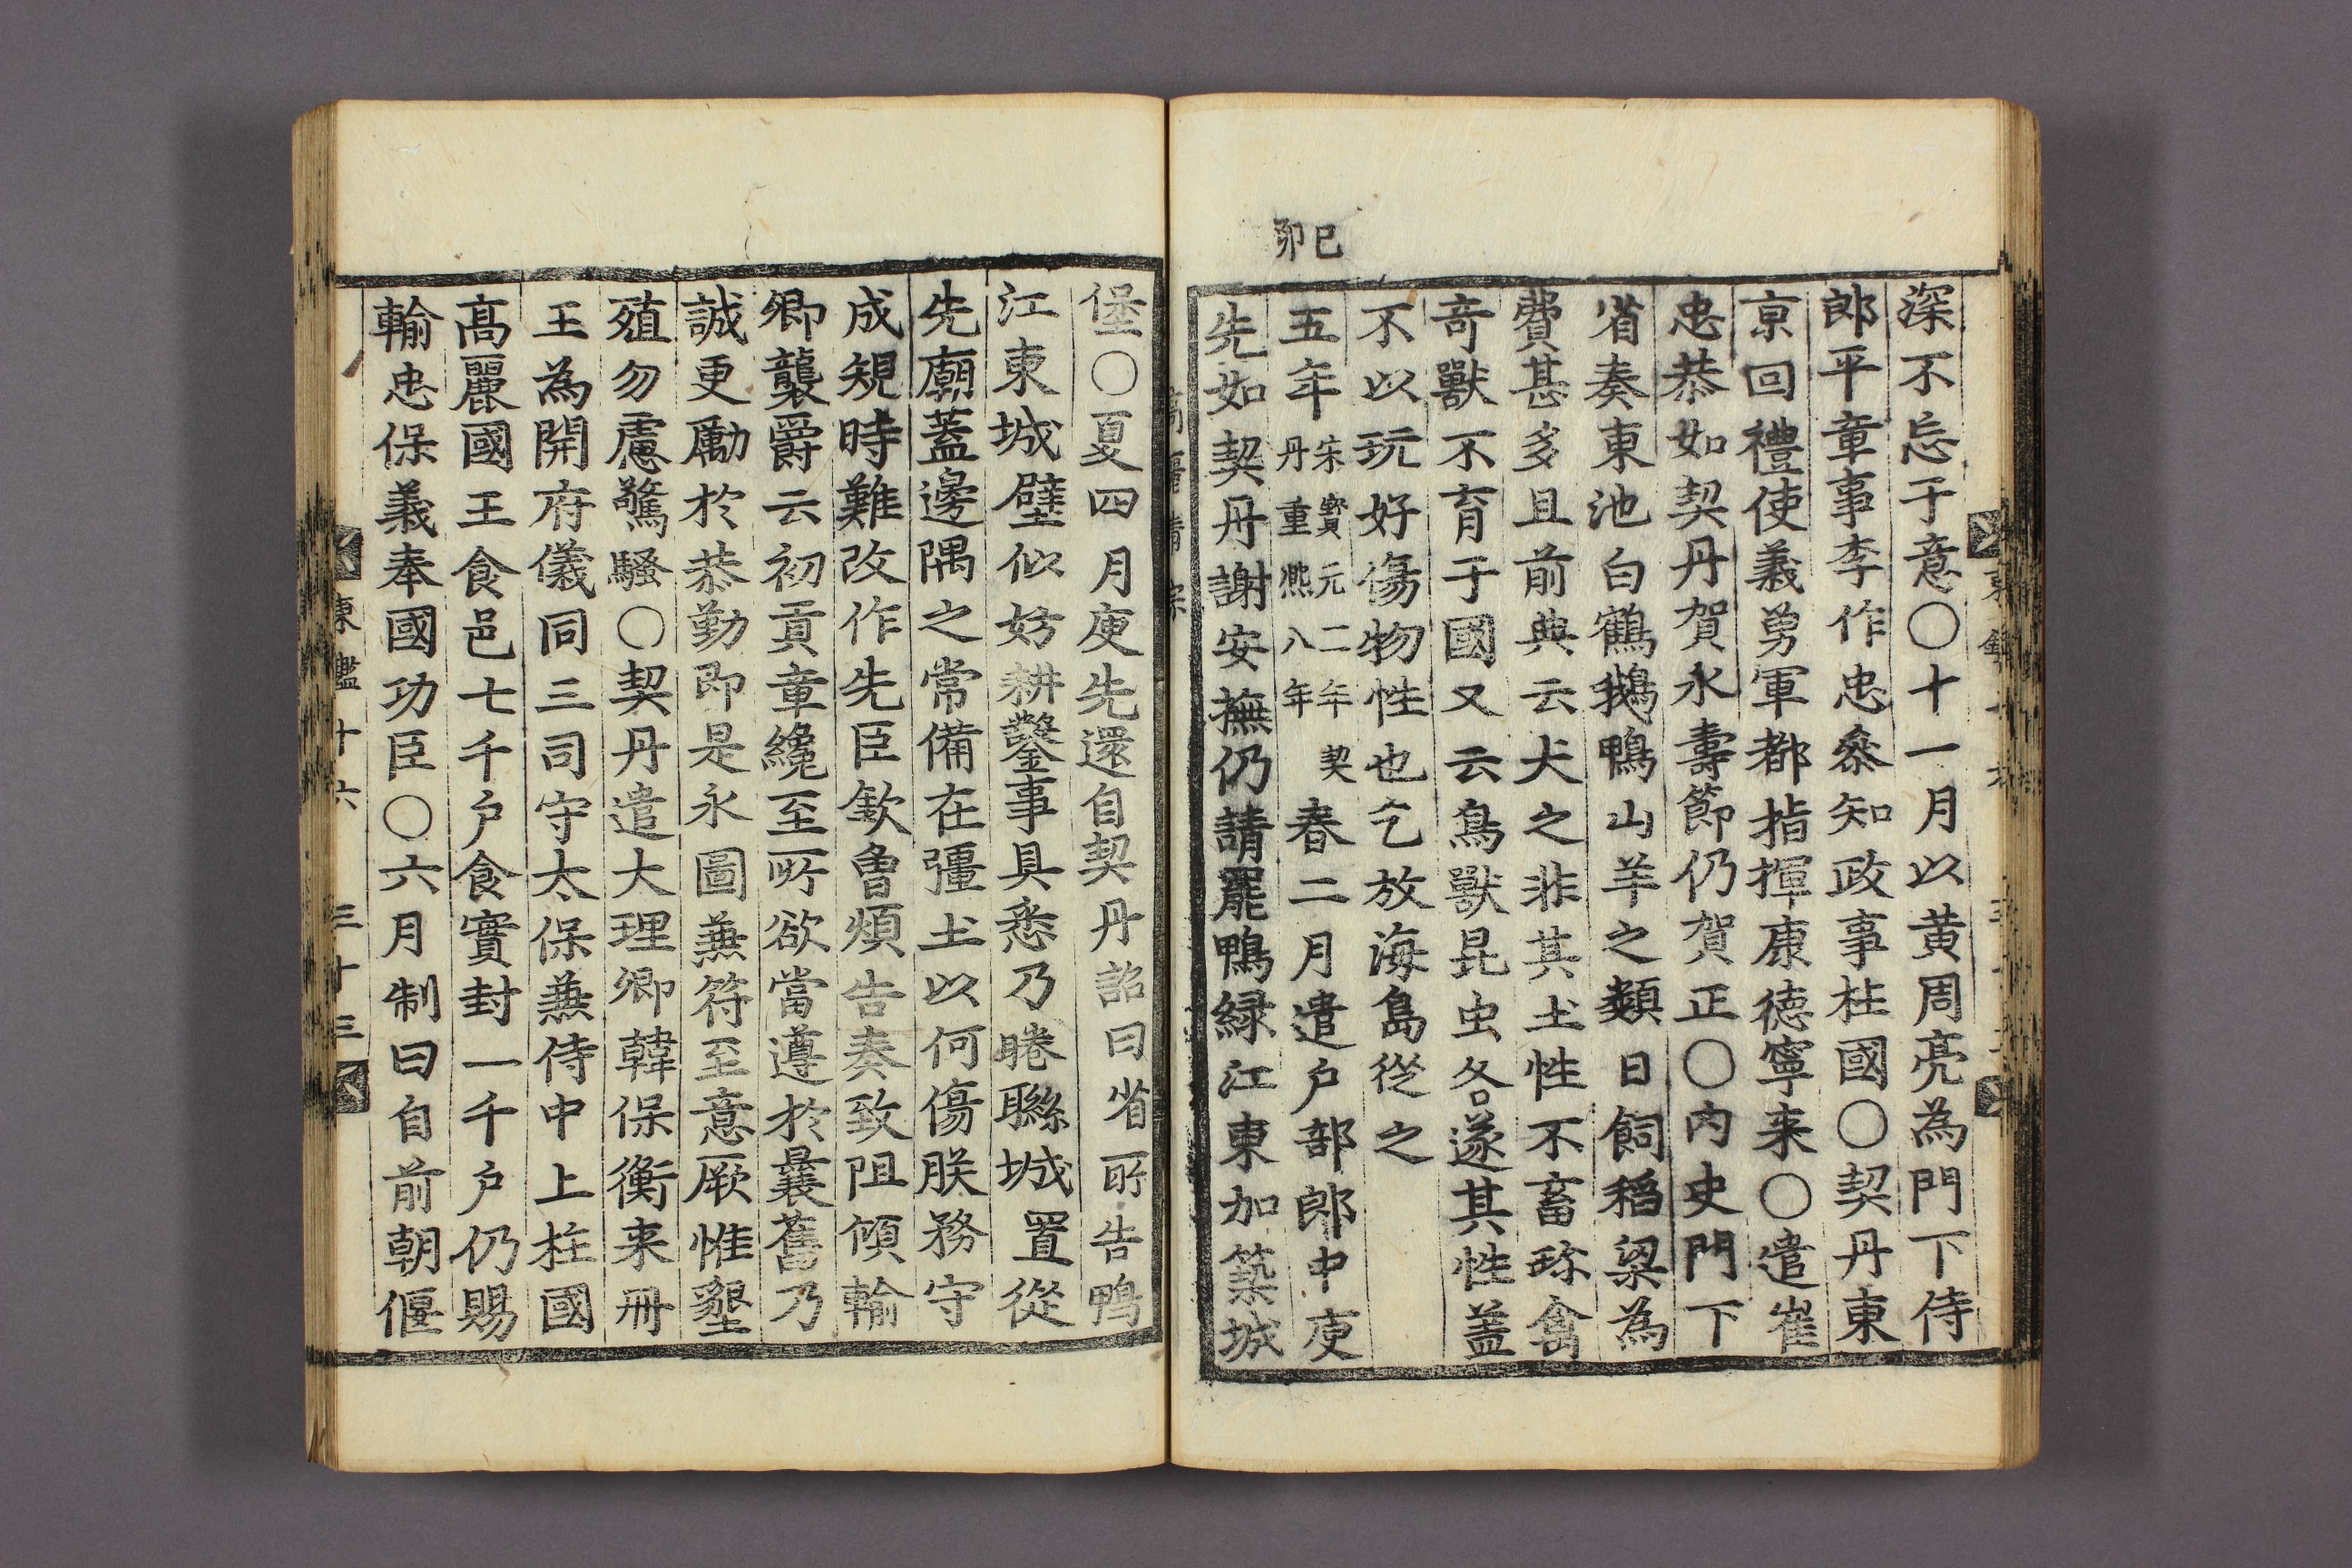 深不忘于意〇十一月以黄周亮為門下侍
郎平章事李作忠叅知政事柱國〇契丹東
京回禮使義勇軍都指揮康德寧来〇遣崔
忠恭如契丹賀永壽節仍賀正〇內史門下
省奏東池白鶴鵝鴨山羊之類日飼稻粱為
費甚多且前典云犬之非其土性不畜珎禽
奇獸不育于國又云鳥獸昆虫各遂其性盖
不以玩好傷物性也乞放海島從之
己卯
五年宋寶元二年契丹重熈八年春二月遣戶部郎中庾
先如契丹謝安撫仍請罷鴨緑江東加築城
堡〇夏四月庾先還自契丹詔曰省所告鴨
江東城壁似妨耕鑿事具悉乃睠聮城置從
先廟蓋邊隅之常備在彊土以何傷朕務守
成䂓時難改作先臣欽曾煩告奏致阻傾輸
卿襲爵云初貢章纔至所欲當遵於曩舊乃
誠更勵於恭勤即是永圖兼符至意厥惟墾
殖勿慮驚騷〇契丹遣大理卿韓保衡来冊
王為開府儀同三司守太保兼侍中上柱國
高麗國王食邑七千戶食實封一千戶仍賜
輸忠保義奉國功臣〇六月制曰自前朝偃
東鑑十六 三十三